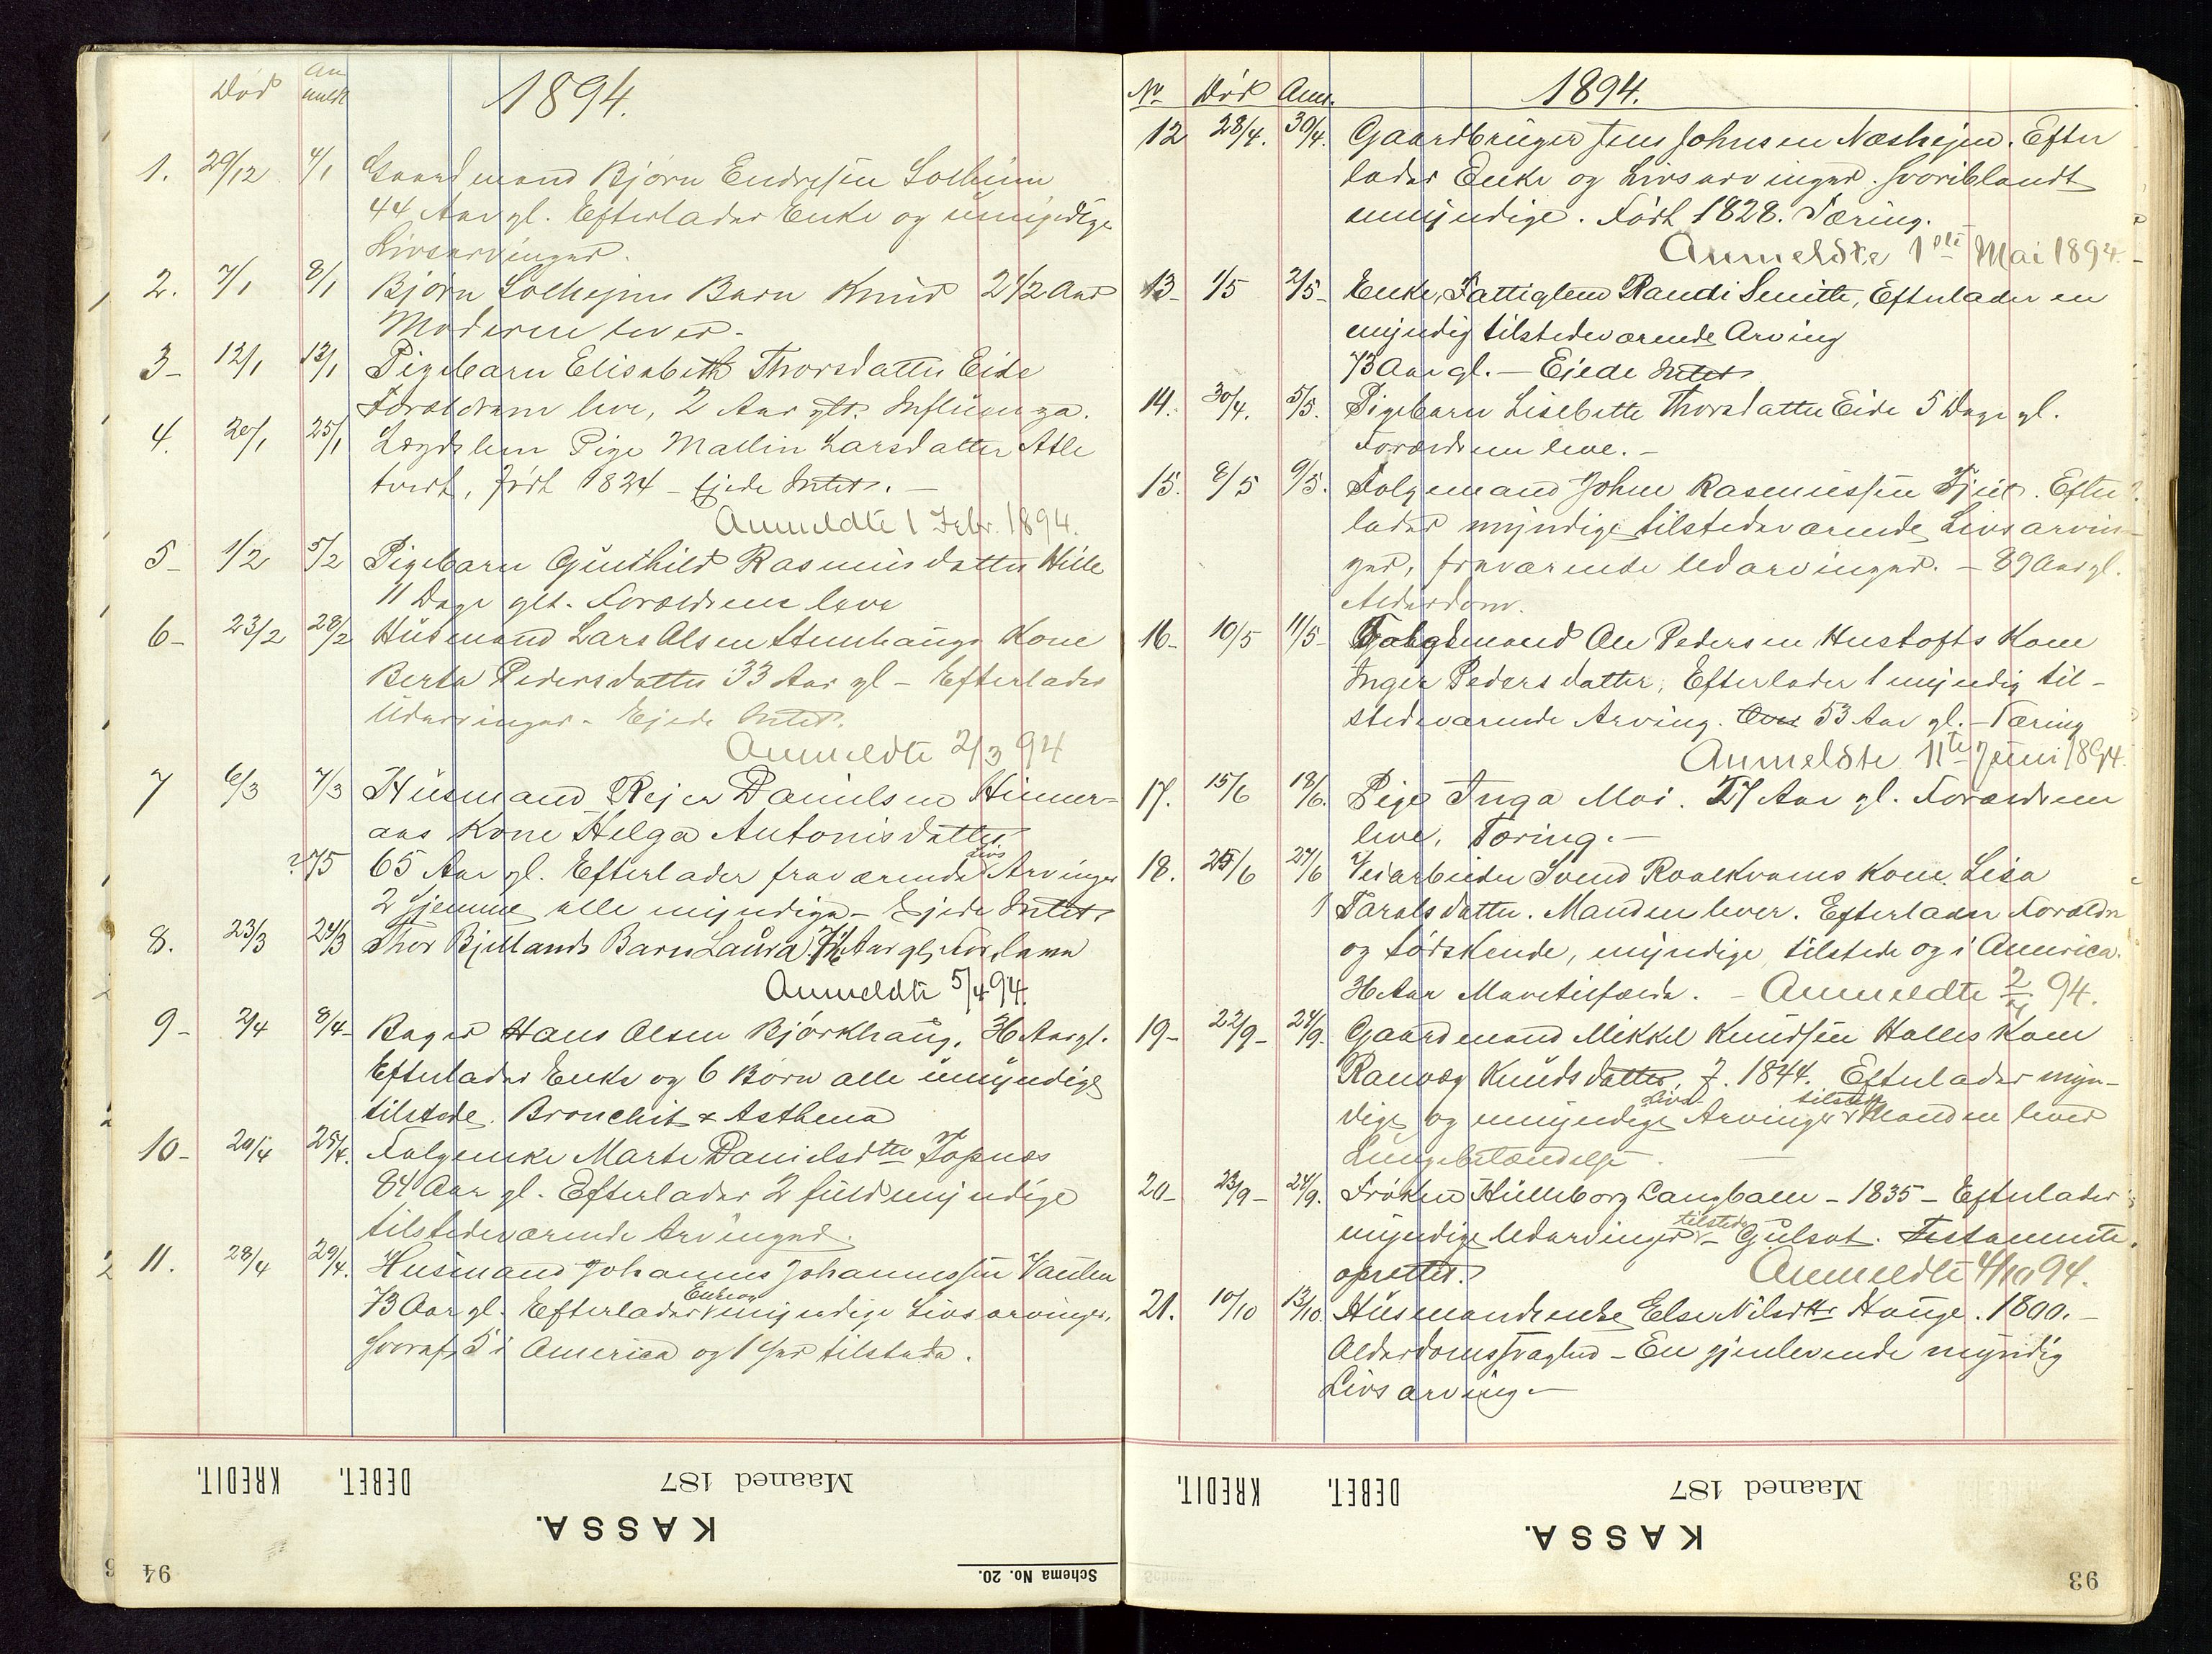 Død An
meldt 1894.
1. 29/12 4/1 Gaardmand Bjørn Endresen Solheim
44 Aar gl. Efterlader Enke og umyndige
Livsarvinger.
2. 7/1 8/1 Bjørn Solhejms Barn Knud 2 1/2 Aar
Moderen lever -
3- 12/1 13/1 Pigebarn Elisabeth Thorsdatter Eide
Forældrene leve, 2 Aar glt. Influenza.
4. 20/1 25/1 Lægdslem Pige Mallin Larsdatter Atle
tvedt, født 1824 - Ejede Intet. -
Anmeldte 1 Febr. 1894.
5- 1/2 5/2 Pigebarn Gunhild Rasmusdatter Hille
11 Dage glt. Forældrene leve
6- 23/2 28/2 Husmand Lars Olsen Stenhaugs Kone
Berta Pedersdatter 33 Aar gl - Efterlader
Udarvinger - Ejede Intet.
Anmeldte 2/3 94
7 6/3 7/3 Husmand Rejer Danielsen Himer-
aas Kone Helga Antonisdatter
65 Aar gl. Efterlader fraværende Livs Arvinger
2 Hjemme alle myndige - Ejede Intet.
8. 23/3 24/3 Thor Bjellands Barn Laura Aar gl, For, leve
Anmeldte 5/4 94.
9- 2/4 8/4- Bager Hans Olsen Bjørkhaug, 36 Aar gl.
Efterlader Enke og 6 Børn alle umyndige
tilstede. Bronchit & Asthena
10- 20/4 25/4. Folgeenke Marte Danielsdtter Topnes
84 Aar gl. Efterlader 2 fuldmyndige
tilstedeværende Arvinger.
11. 28/4 29/4. Husmand Johannes Johannessen Vaulen
73 Aar gl. Efterlader Enke og myndige Livsarvinger,
hvoraf 5 i America og 1 her tilstede.
KREDIT. DEBET. Maaned 187
KASSA.
94 Schema No. 20.
No Død Anm. 1894.
12 28/4. 30/4. Gaardbruger Jens Johnsen Neshejm. Efter
lader Enke og Livsarvinger. hvoriblandt
umyndige. Født 1828. Tæring.
Anmeldte 1ste Mai 1894. -
13- 1/5 2/5- Enke, Fattiglem Randi Smitte, Efterlader en
myndig tilstedeværende Arving
73 Aar gl. - Ejede Intet
14. 30/4. 5/5. Pigebarn Lisebette Thorsdatter Eide 5 Dage gl.
Forældrene leve. -
15. 8/5 9/5. Folgemand John Rasmussen. Efter
lader myndige tilstedeværende Livsarvin-
ger, fraværende Udarvinger. - 89 Aar gl.
Alderdom.
16- 10/5 11/5- Ole Pedersen Hustofts Kone
Inger Pedersdatter, Efterlader 1 myndig til-
stedeværende Arving. 53 Aar gl. - Tæring
Anmeldte 11te Juni 1894.
17. 15/6 18/6. Pige Inga Moi. 27 Aar gl. Forældrene
leve. Tæring. -
18. 25/6 27/6 Veiarbeider Svend Roalkvams Kone Lisa
Taralsdatter. Manden lever. Efterlader Forældre
og Sødskende, myndige tilstede og i America.
36 Aar Mavetilfælde. - Anmeldte 2/7 94.
19- 22/9- 24/9. Gaardmand Mikkel Knudsen Halles Kone
Ranveg Knudsdatter, f. 1844. Efterlader myn-
dige og umyndige Livs Arvinger tilstede & Manden lever
Lungebetændelse. -
20- 23/9- 24/9. Frøken Hilleborg Langballe - 1835 - Efterlader
myndige Udarvinger tilstede - Gulsot. Testamente
oprettet. Anmeldte 4/10 94.
21. 10/10 13/10. Husmandsenke Else Nilsdtr Hauge. 1800. -
Alderdomssvaghed - En gjenlevende myndig
Livsarving. -
KREDIT. DEBET. Maaned 187
KASSA.
93